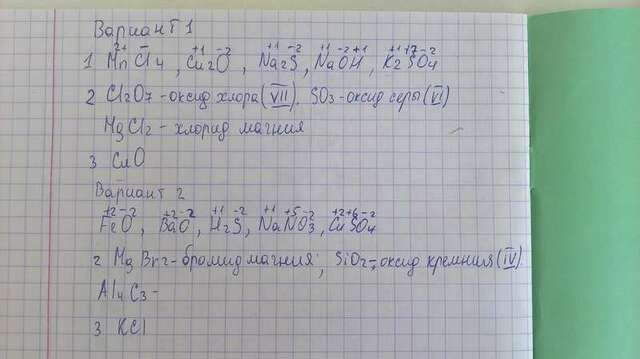 Вариант 1
1 Mn²⁺Cl⁻4, Cu⁺¹2O⁻², Na⁺¹2S⁻², Na⁺¹O⁻²H⁺¹, K⁺¹2S⁺⁷O⁻²4
2 Cl2O7 - оксид хлора (VII). SO3 - оксид серы (VI)
MgCl2 - хлорид магния
3 CuO
Вариант 2
Fe⁺²O⁻², Ba⁺²O⁻², H⁺¹2S⁻², Na⁺¹N⁺⁵O⁻²3, Cu⁺²S⁺⁶O⁻²4
2 MgBr2 - бромид магния; SiO2 - оксид кремния (IV)
Al4C3 -
3 KCl